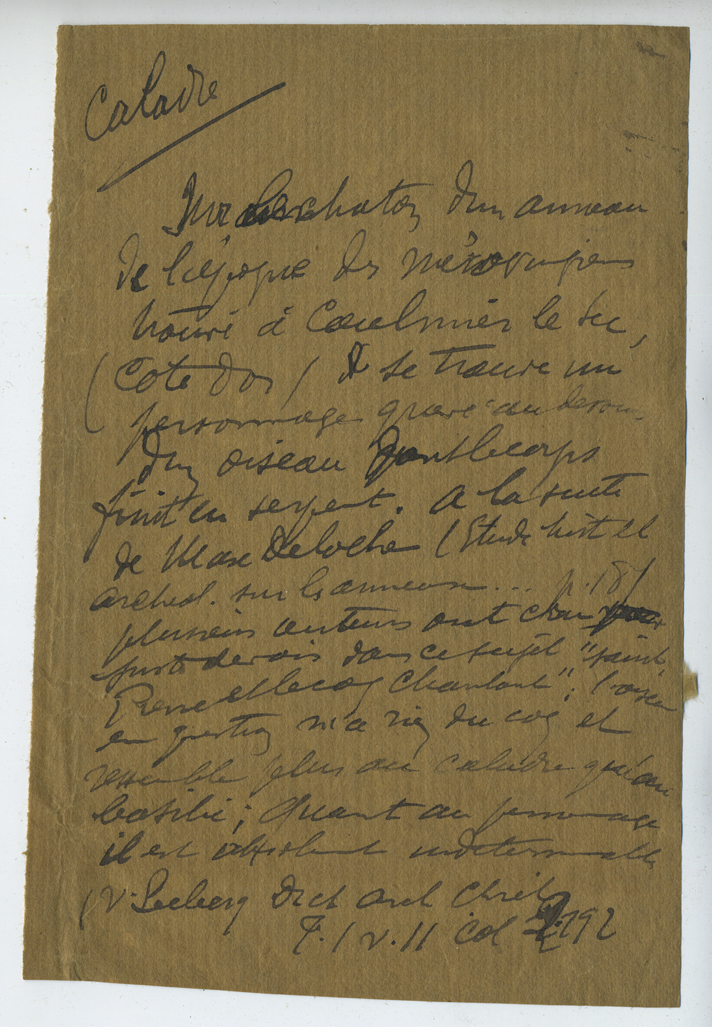 Caladre
Sur le chaton d'un anneau
de l'époque des mérovingiens
trouvé à Coulmier le sec,
(Cote d'or) se trouve un
personnage gravé au dessou
d'un oiseau dont le corps
finit en serpent. A la suite
de Max Deloche (Etude hist et
archeol. sur les anneaux... p. 18)
plusieurs auteurs ont cru
voir dans ce sujet "saint
Pierre et le coq chantant"; l'oiseau
en question n'a rien du coq et
ressemble plus au caladre qu'au
basilic; Quant au personnage
il est absolument indéterminable
(v. Leclercq Dict arch chrét
T. I v. II col 2192